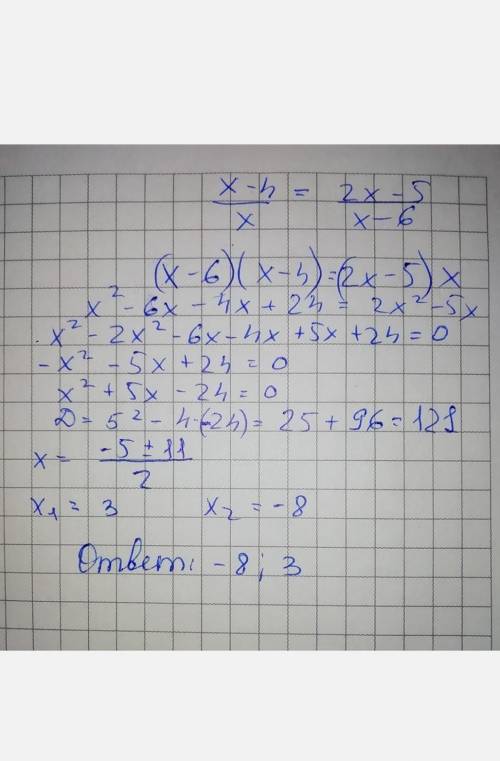 x-4/x = 2x-5/x-6
(x-6)(x-4)=(2x-5)x
x²-6x-4x+24 = 2x²-5x
x²-2x²-6x-4x+5x+24=0
-x²-5x+24=0
x²+5x-24=0
D=5²-4·(-24)=25+96=121
x= -5±11/2
x₁=3 x₂=-8
Ответ: -8; 3